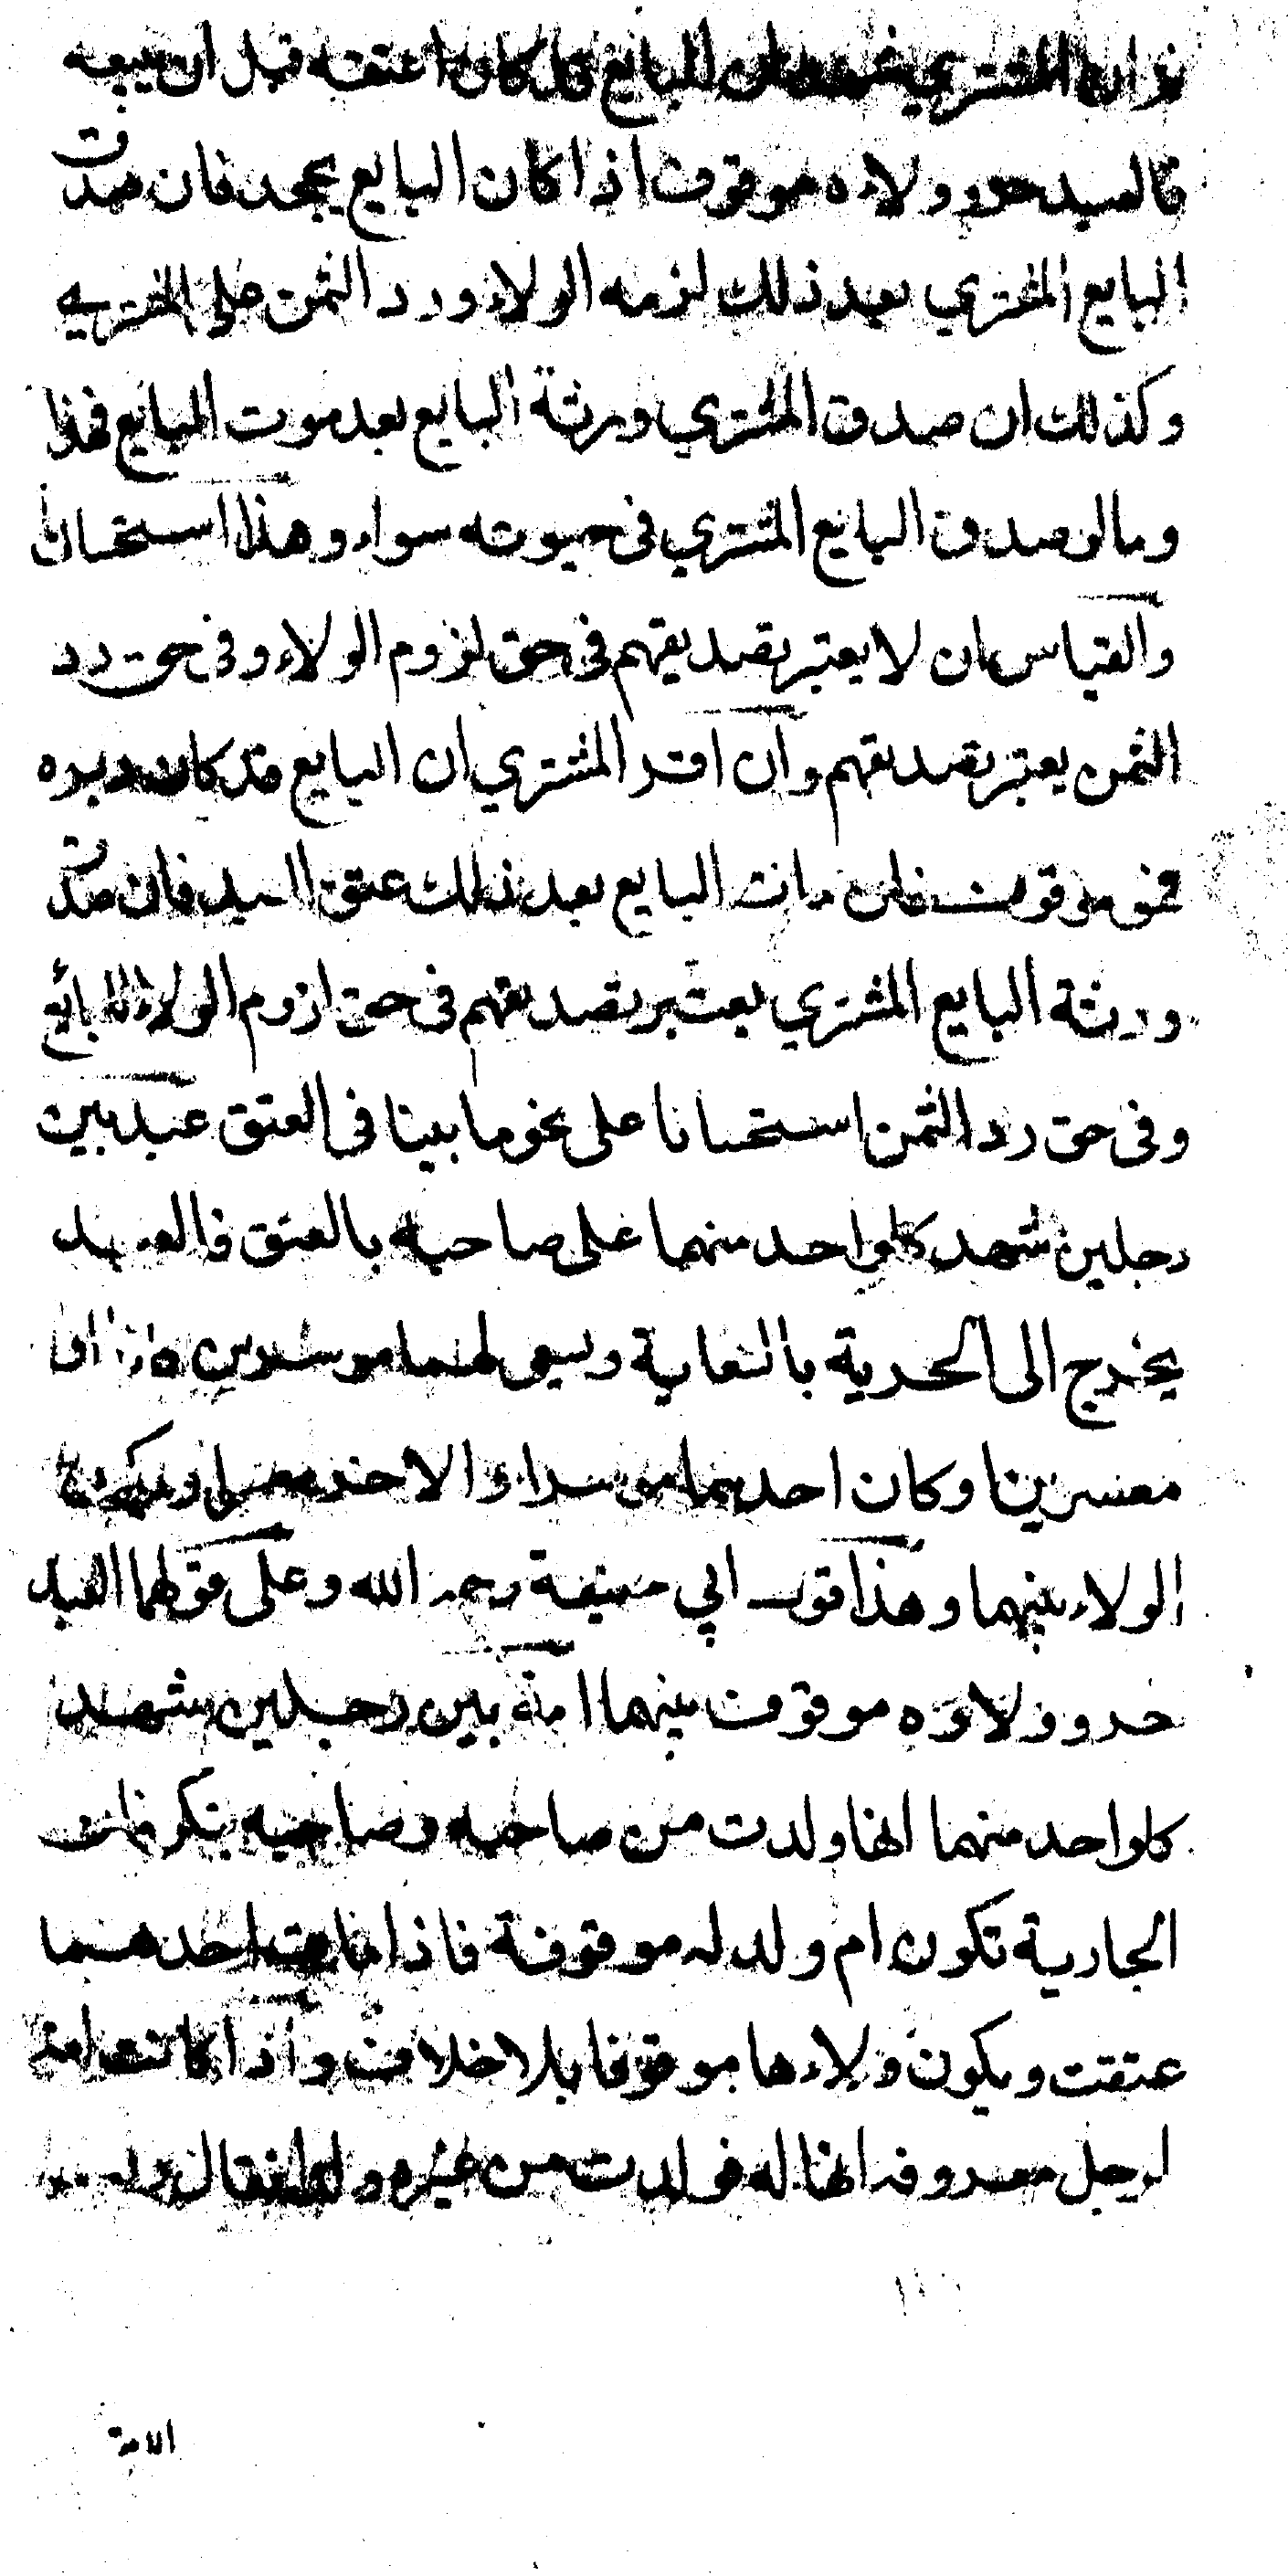 ثم ان المشتري ان البايع قد كان اعتقه قبل ان يبيعه
فالعبد حر وولاءه موقوف اذا كان البايع يجحد فان صدق
البايع المشتري بعد ذلك لزمه الولاء ورد الثمن على المشتري
وكذلك ان صدق المشتري ورثة البايع بعد موت البايع فهذا
وما لو صدق البايع المشتري في حيوته سواء وهذا استحسان
والقياس ان لا يعتبر تصديقهم في حق لزوم الولاء وفي حق رد
الثمن يعتبر تصديقهم وان اقر المشتري ان البايع قد كان دبره
فهو موقوف فان مات البايع بعد ذلك عتق العبد فان صدق
ورثة البايع المشتري يعتبر تصديقهم في حق لزوم الولاء للبائع
وفي حق رد الثمن استحسانا على نحو ما بينا في العتق عبد بين
رجلين شهد كلواحد منهما على صاحبه بالعتق فالعبد
يخرج الى الحرية بالسعاية ويسعى لهما موسرين كانا او
معسرين او كان احدهما موسرا والاخر معسرا ويكون
الولاء بينهما وهذا قول ابي حنيفة رحمه الله وعلى قولهما العبد
حر وولاؤه موقوف بينهما امة بين رجلين شهد
كلواحد منهما انها ولدت من صاحبه وصاحبه ينكر فان
الجارية تكون ام ولد له موقوفة فاذا مات احدهما
عتقت ويكون ولاءها موقوفا بلا خلاف واذا كانت امة
لرجل معروفة انها له فولدت من غيره ولدا فقال
الامة